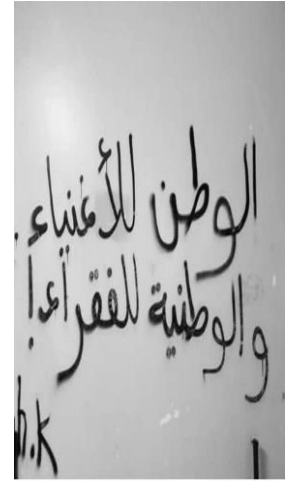 الوطن للأغنياء
والوطنية للفقراء!
h.k